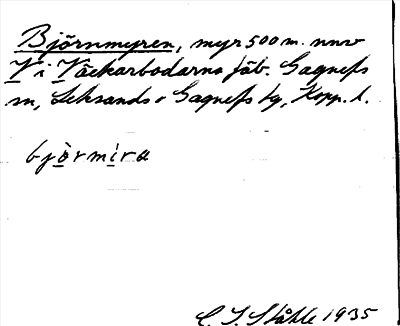 Björnmyren, myr 500 m. nnv
V i Väckarbodarna fäb. Gagnefs
sn, Leksands o Gagnefs tg, Kopp. l.
björmira
C. I. Ståhle 1935